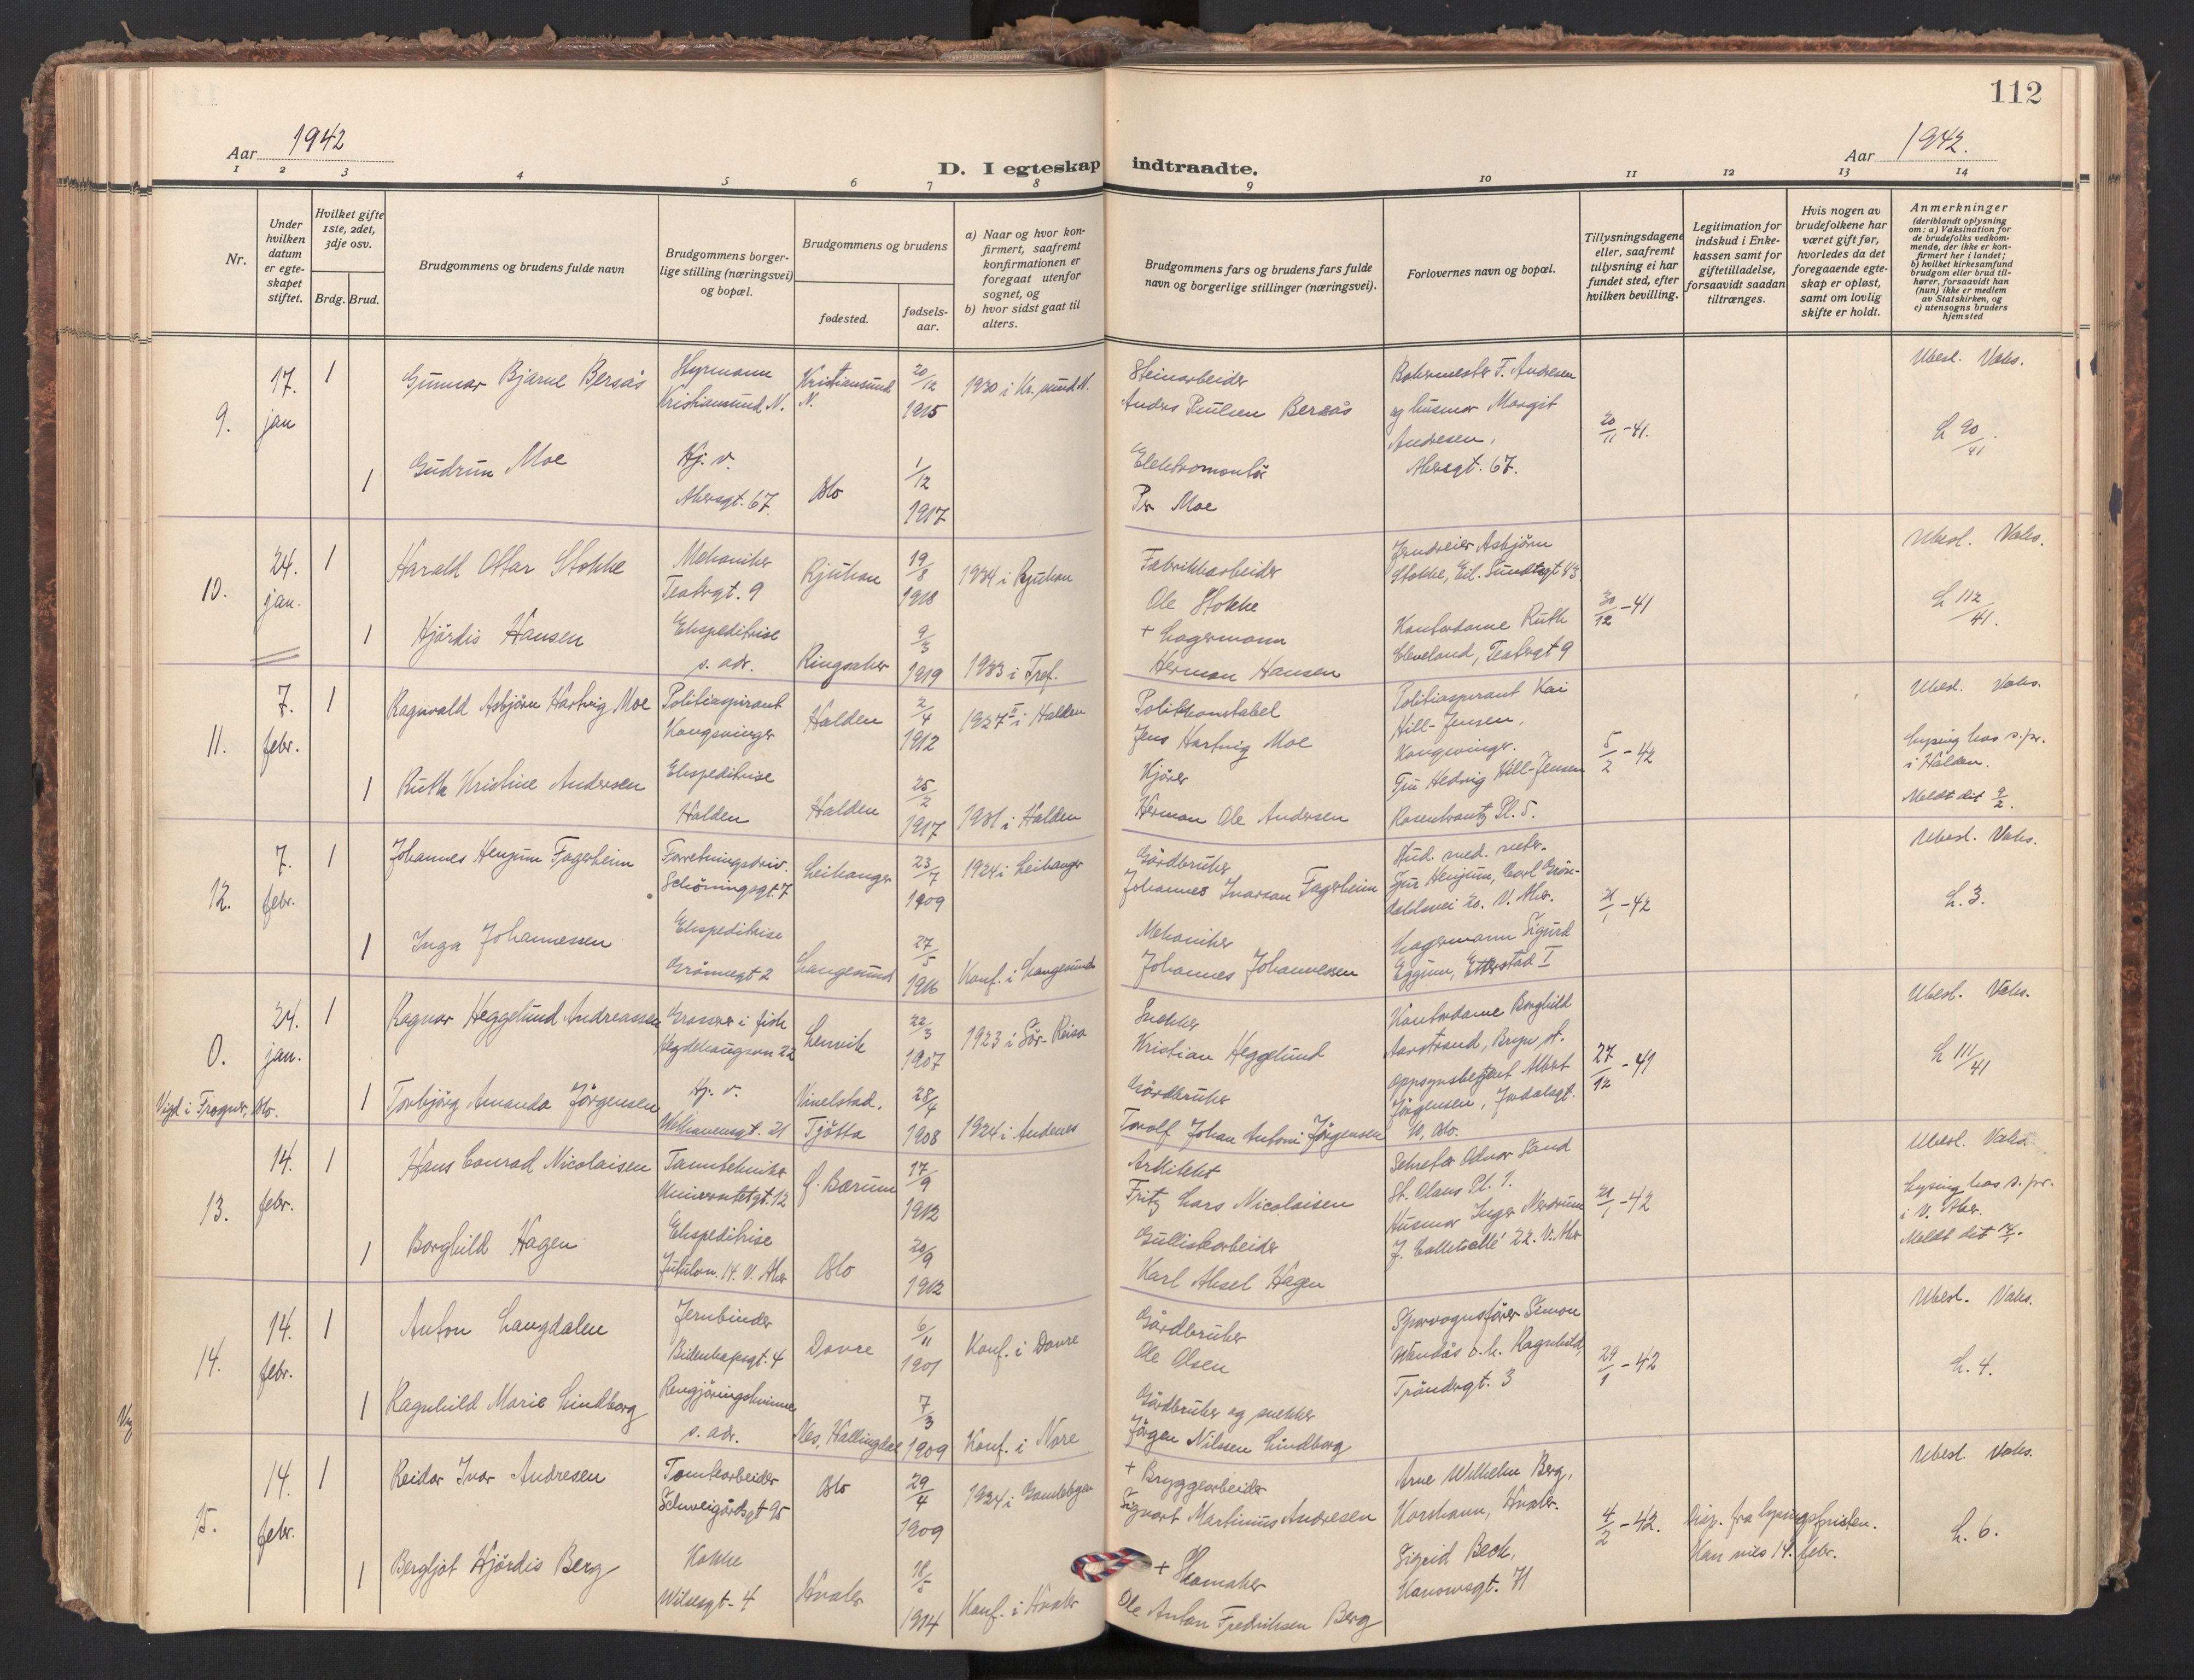 112
Aar 1942
D. I egteskap indtraadte.
Aar 1942.
1 2 3 4 5 6 7 8 9 10 11 12 13 14
Nr.
Under hvilken datum er egteskapet stiftet.
Hvilket gifte 1ste, 2det, 3dje osv.
Brdg. Brud.
Brudgommens og brudens fulde navn
Brudgommens borgerlige stilling (næringsvei) og bopæl.
Brudgommens og brudens
fødested.
fødselsaar.
a) Naar og hvor konfirmert, saafremt konfirmationen er foregaat utenfor sognet, og
b) hvor sidst gaat til alters.
Brudgommens fars og brudens fars fulde navn og borgerlige stillinger (næringsvei).
Forlovernes navn og bopæl.
Tillysningsdagene eller, saafremt tillysning ei har fundet sted, efter hvilken bevilling.
Legitimation for indskud i Enkekassen samt for giftetilladelse, forsaavidt saadan tiltrænges.
Hvis nogen av brudefolkene har været gift før, hvorledes da det foregaaende egteskap er opløst, samt om lovlig skifte er holdt.
Anmerkninger
(deriblandt oplysning om: a) Vaksination for de brudefolks vedkommende, der ikke er konfirmert her i landet;
b) hvilket kirkesamfund brudgom eller brud tilhører, forsaavidt han (hun) ikke er medlem av Statskirken, og
c) utensogns bruders hjemsted
9. 17. jan 1 Gunnar Bjarne Bersås
Hyrmann Kristiansund N.
Kristiansund N.
20/12 1915
1930 i Kr.sund N.
Steinarbeider
Anders Paulsen Bersås
Bakermester F. Andresen
og husmor Margit
Andresen,
Akersgt. 67.
20/11-41.
Ubesl. Vaks.
L 90/41.
1 Gudrun Moe
Hj. v.
Akersgt. 67.
Oslo
1/12 1917
Elektromontör
Per Moe
10. 24. jan. 1 Harald Ottar Stokke
Mekaniker
Teatergt. 9
Rjukan
19/8 1918
1934 i Rjukan
Fabrikkarbeider
Ole Stokke
Stokke, Eil. Sundtsgt 43
30/12-41
Ubesl. Vaks.
L 112/41.
1 Hjördis Hansen
Ekspeditrise
s. adr.
Ringsaker
9/3 1919
1933 i Tref.
+ Lagermann
Herman Hansen
Kontordame Ruth
Cleveland, Teatergt 9
11. 7. febr. 1 Ragnvald Asbjörn Hartvig Moe
Politiaspirant
Kongsvinger
Halden
2/4 1912
1927 i Halden
Politikonstabel
Jens Hartvig Moe
Politiaspirant Kai
Hill-Jensen,
Kongsvinger.
Fru Hedvig Hill-Jensen
Rosenkrantz Pl. 5.
5/2-42
Ubesl. Vaks.
Lysing hos s.pr.
i Halden.
Meldt dit 9/2.
1 Ruth Kristine Andersen
Ekspeditrise
Halden
Halden
25/2 1917
1931 i Halden
Kjörer
Herman Ole Andersen
12. 7. febr. 1 Johannes Henjum Fagerheim
Forretningsdriv.
Schöningsgt. 7
Leikanger
23/7 1909
1924 i Leikanger
Gårdbruker
Johannes Ivarson Fagerheim
Stud. med.
Henjum, Carl Grön-
dahlsvei 20. V. Aker.
21/1-42
Ubesl. Vaks.
L. 3.
1 Inga Johannessen
Ekspeditrise
Grönnegt 2
Langesund
27/5 1916
Konf. i Langesund
Mekaniker
Johannes Johannesen
Lagermann Sigurd
Eggum, Etterstad I
0. 24. jan. 1 Ragnar Heggelund Andreassen
Grosserer i fisk
Hegdehaugsvn 22
Lenvik
22/3 1907
1923 i Sör-Reisa
Snekker
Kristian Heggelund
Kontordame Borghild
Aarstrand, Bryn st.
Oppsynsbetjent Albert
Jörgensen, Jordalsgt.
10, Oslo.
27/12-41
Ubesl. Vaks.
L 111/41
Vigd i Frogner, Oslo.
1 Torbjörg Amanda Jörgensen
Hj. v.
Welhavensgt. 21
Vinelstad, Tjötta
28/4 1908
1924 i Andenes
Gårdbruker
Torolf Johan Antoni Jörgensen
13. 14. febr. 1 Hans Conrad Nicolaisen
Tanntekniker
Universitetgt. 12
Ö. Bærum
17/9 1912
Arkitekt
Fritz Lars Nicolaisen
Sekretær Odvar Sand
St. Olavs Pl. 1.
Husmor Inger Nerdrum
J. Collets allé 22. V. Aker
21/1-42
Ubesl. Vaks.
Lysing hos s.pr.
i V. Aker.
Meldt dit
1 Borghild Hagen
Ekspeditrise
Jutulvn. 14. V. Aker
Oslo
20/9 1912
Gullistearbeider
Karl Aksel Hagen
14. 14. febr. 1 Anton Langdalen
Jernbinder
Bidenkapsgt. 4
Dovre
6/11 1901
Konf. i Dovre
Gårdbruker
Ole Olsen
Sporvognsförer Simon
Wendås o.h. Ragnhild,
Tröndergt. 3
29/1-42
Ubesl. Vaks.
L. 4.
1 Ragnhild Marie Lindborg
Rengjöringskvinne
s. adr.
Nes, Hallingdal
7/3 1909
Konf. i Nore
Gårdbruker og snekker
Jörgen Nilssen Lindborg
15. 14. febr. 1 Reidar Ivar Andresen
Tomtearbeider
Schweigårdsgt 95
Oslo
29/4 1909
1924 i Gamlebyen
+ Bryggearbeider
Sigvart Martinius Andresen
Arne Wilhelm Berg,
Korshavn, Hvaler.
4/2-42.
Disp. fra lysingsfristen.
Kan vies 14. febr.
Ubesl. Vaks.
L. 6.
1 Bergljot Hjördis Berg
Kokke
Wilsesgt. 4
Hvaler
18/5 1914
Konf. i Hvaler
+ Skomaker
Ole Anton Fredriksen Berg
Sigrid Beck,
Kanowsgt. 71